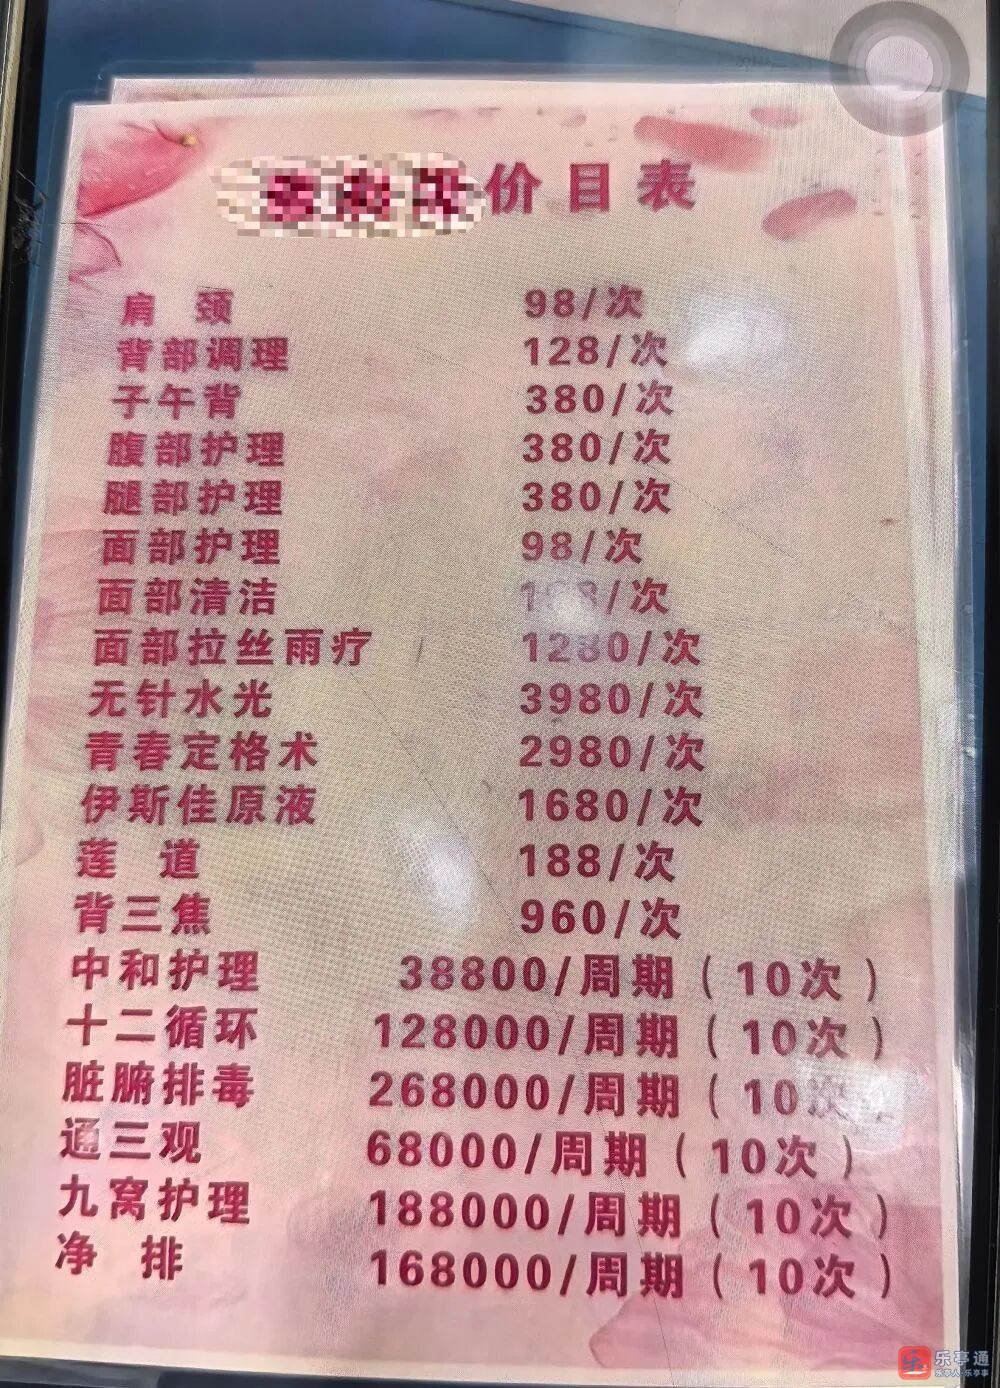 价目表
肩 颈 98/次
背部调理 128/次
子午背 380/次
腹部护理 380/次
腿部护理 380/次
面部护理 98/次
面部清洁 /次
面部拉丝雨疗 1280/次
无针水光 3980/次
青春定格术 2980/次
伊斯佳原液 1680/次
莲 道 188/次
背三焦 960/次
中和护理 38800/周期（10次）
十二循环 128000/周期（10次）
脏腑排毒 268000/周期（10次）
通三观 68000/周期（10次）
九窝护理 188000/周期（10次）
净 排 168000/周期（10次）
乐亭通
乐亭人·乐亭事